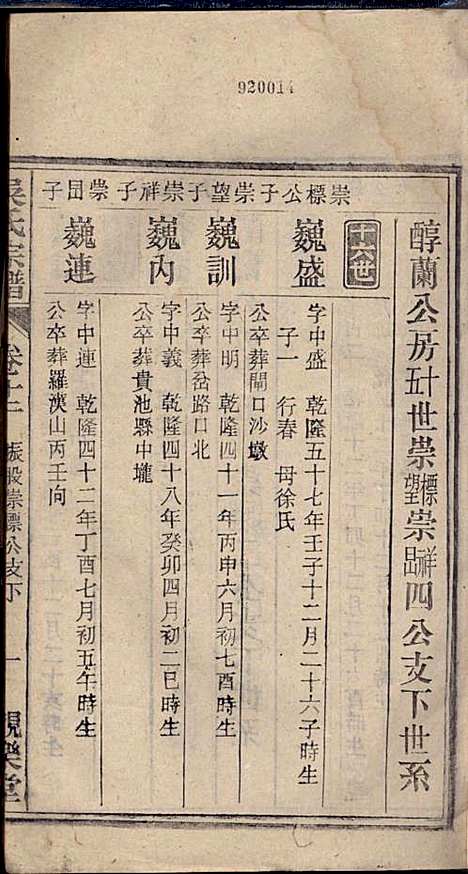 920014
醇蘭公房五十世崇標崇望崇祥崇昌四公支下世系
崇標公子崇望子崇祥子崇昌子
十六世
巍盛
字中盛 乾隆五十七年壬子十二月二十六子時生
子一 行春 母徐氏
公卒葬閘口沙墩
巍訓
字中明 乾隆四十一年丙申六月初七酉時生
公卒葬岔路口北
巍內
字中義 乾隆四十八年癸卯四月初二巳時生
公卒葬貴池縣中壠
巍連
字中連 乾隆四十二年丁酉七月初五午時生
公卒葬羅漢山丙壬向
吳氏宗譜
卷十二 振股崇標公支下 一 觀樂堂